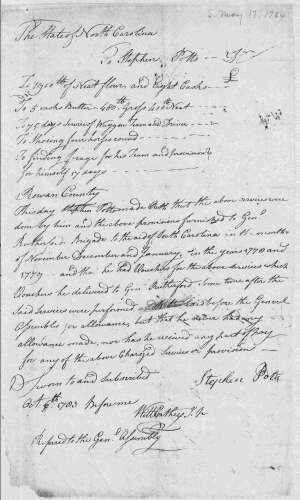 S. May 17, 1784
The State of North Carolina
To Stephen Potts
To 1900 lb of Neat flour and Eight Casks
£
To 5 casks Butter 480 lb Gross 400 Neat
To 75 days Service of Waggon Team and Driver
To Shoeing four horses round
To finding forage for his Team and provision
for himself 17 days
Rowan County
This day Stephen Potts made Oath that the above services were
done by him and the above provisions furnished to Genl
Rutherford Brigade to the aid of South Carolina in the months
of November December and January, in the years 1778 and
1779 and that he had Vouchers for the above services which
Vouchers he delivered to Genl Rutherford Some time after the
Said Services were performed to be laid before the General
Assembly for allowance, but that he never had any
allowance made, nor has received any part of Pay
for any of the above Charged Services or provision
Sworn to and subscribed
Stephen Potts
Oct 6th 1783 Before me
Will J.P.
Referred to the Genl Assembly